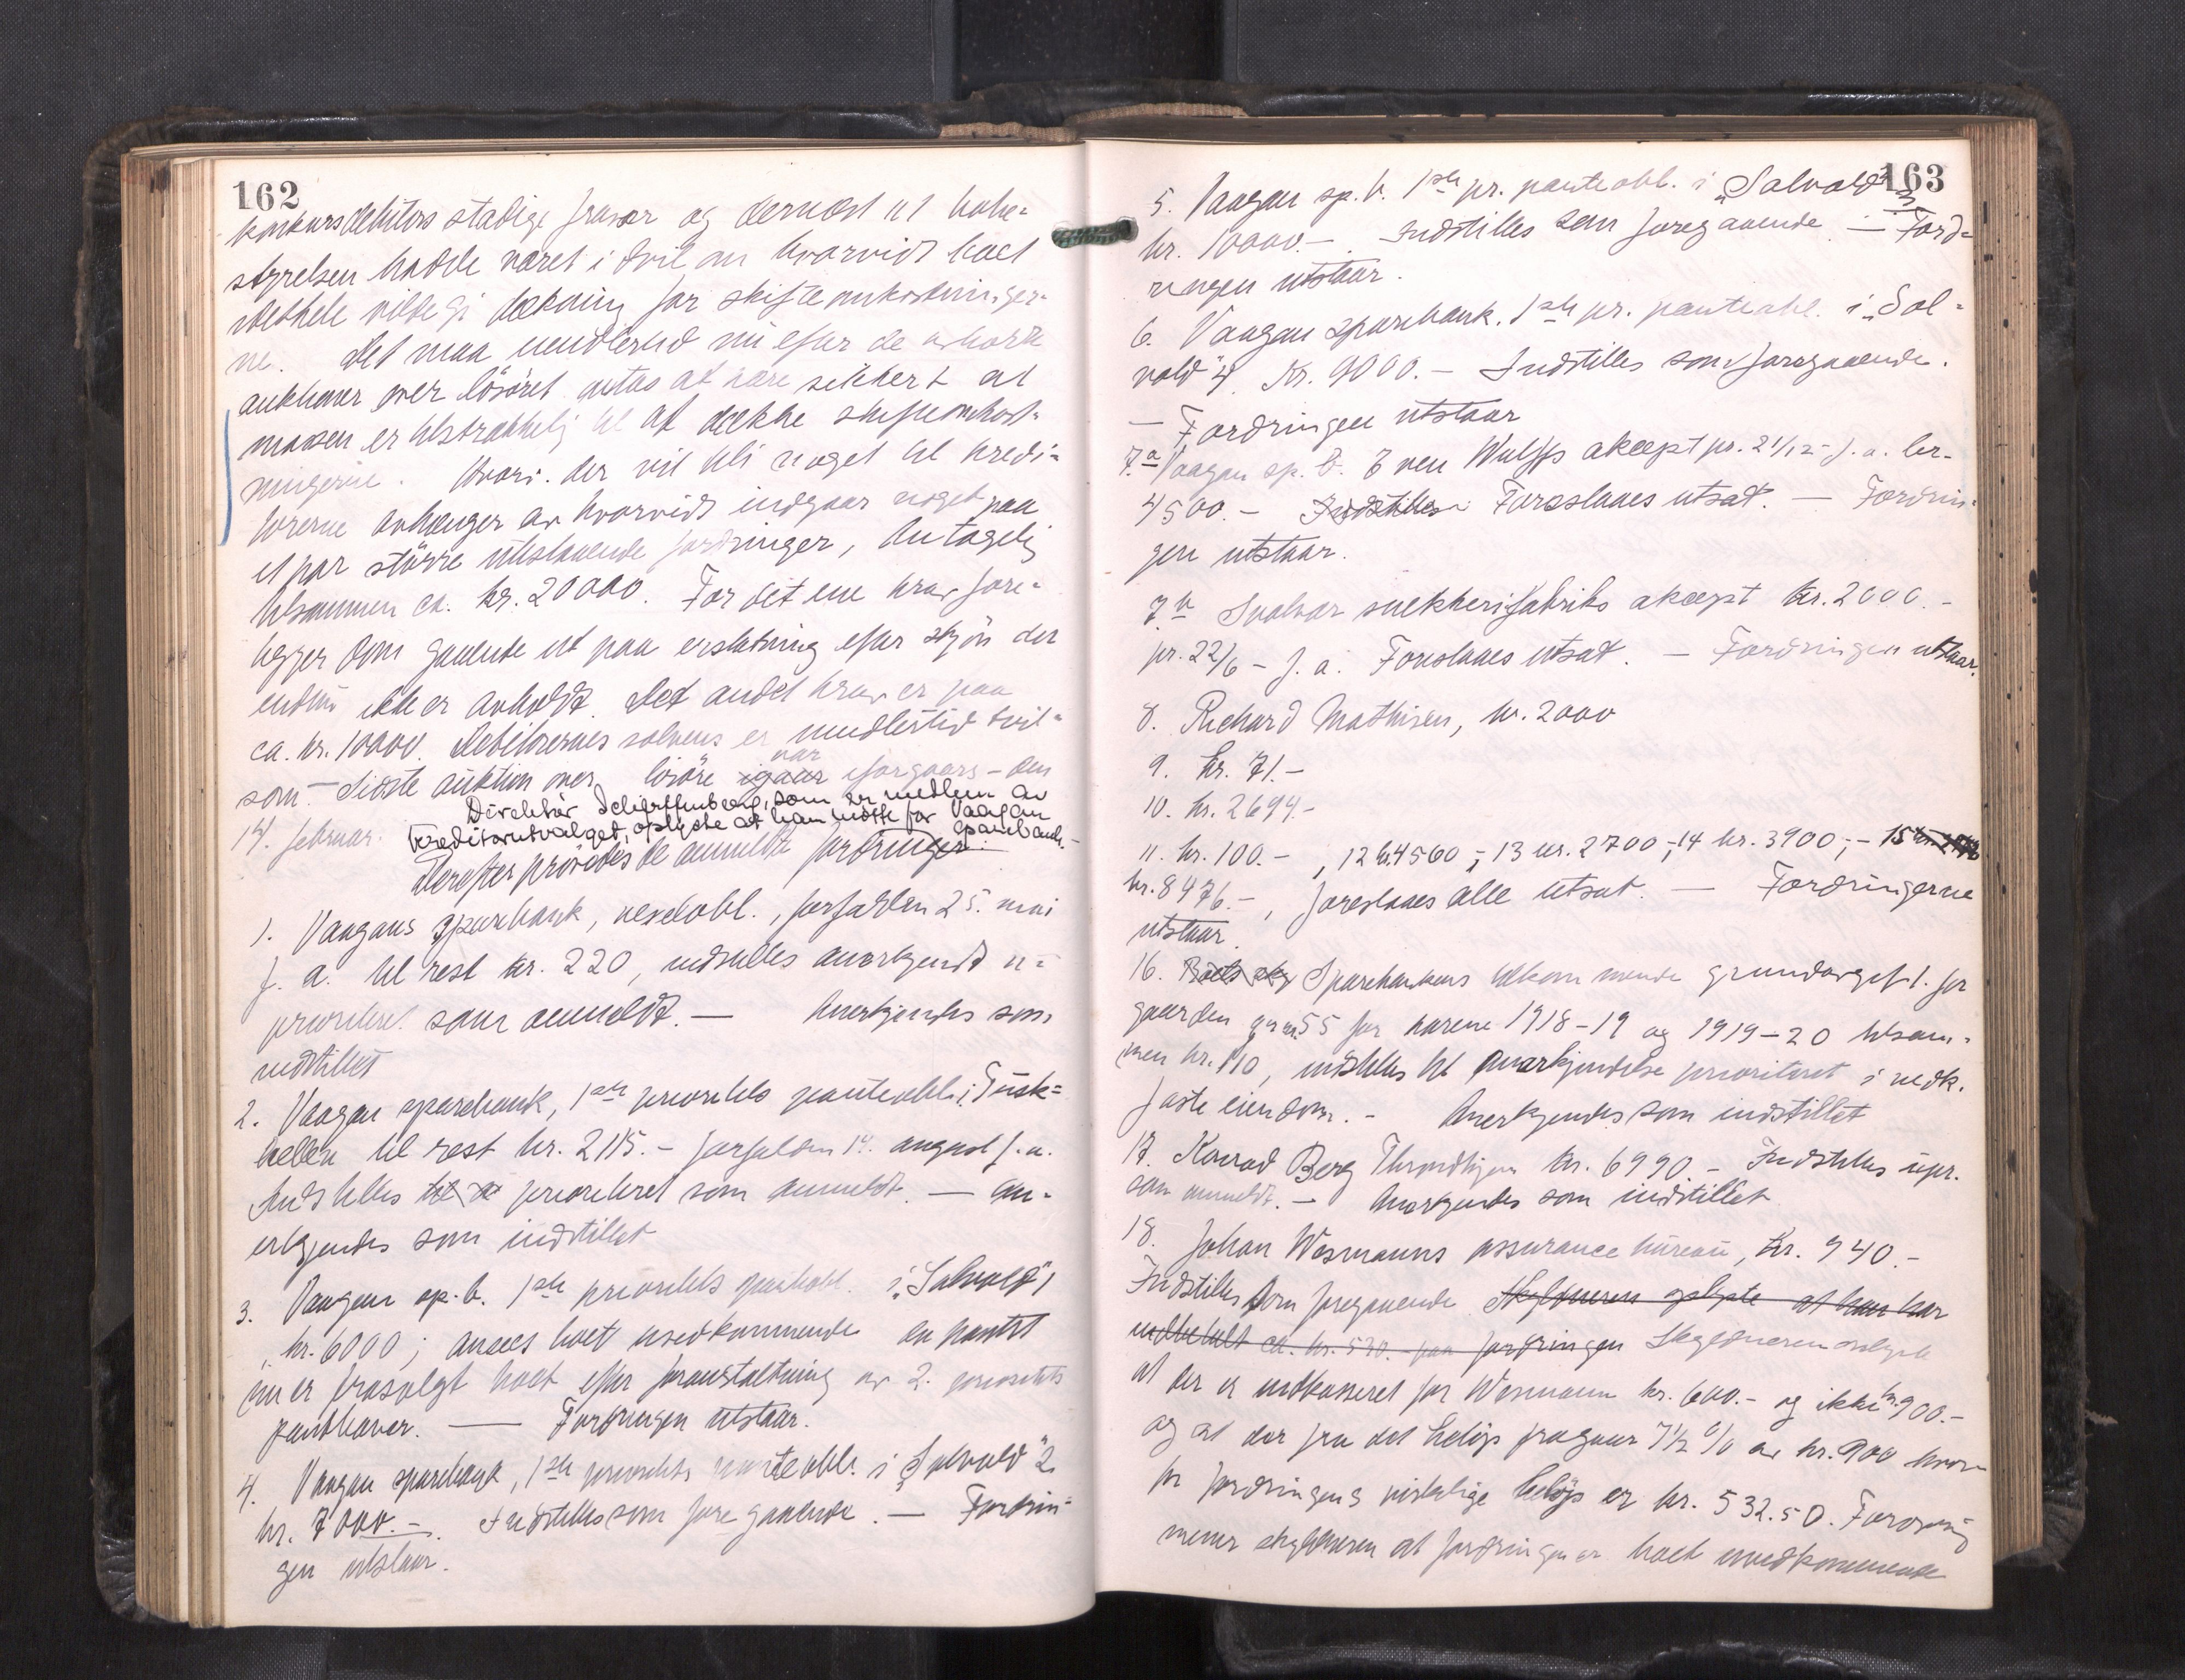 162
konkursdebitors stadige fravær og dernæst at bobe-
styrelsen hadde været i tvil om hvorvidt boet
idethele vilde gi dækning for skifteomkostninger-
ne. Det maa imidlertid nu efter de avholdte
auktioner over løsøret antas at være sikkert at
massen er tilstrækkelig til at dække skifteomkost-
ningerne. Hvorv. der vil bli noget til kredi-
torerne avhænger av hvorvidt indgaar noget paa
et par större utestaaende fordringer, antagelig
tilsammen ca. kr. 20000. For det ene krav fore-
ligger dom gaaende ut paa erstatning efter skjön der
endnu ikke er avholdt. Det andet krav er paa
ca. kr. 10000. Debitorernes solvens er imidlertid tvil-
som. – Sidste auktion over löröre igaar var iforgaars – den
14. februar. Direktör Scherffenberg, som er medlem av
kreditorutvalget, oplyste at han mötte for Vaagan
sparebank. –
Derefter prövedes de anmeldte fordringer:
1. Vaagans sparebank, vexelobl., forfalden 25. mai
f. a. til rest kr. 220, indstilles anerkjendt u-
prioritert som anmeldt. — Anerkjendes som
indstillet
2. Vaagan sparebank, 1ste prioritets panteobl. i Tusk-
hellen til rest kr. 2115.- forfalden 14. august f. a.
Indstilles til a prioriteret som anmeldt. — An-
erkjendes som indstillet
3. Vaagan sp.b. 1ste prioritets panteobl. i „Salvold" 1
kr. 6000; ansees boet uvedkommende da pantet
nu er frasolgt boet efter foranstaltning av 2. prioritets
panthaver. — Fordringen utstaar.
4. Vaagan sparebank, 1ste prioritets panteobl. i „Solvold" 2
kr. 7000.- Indstilles som foregaaende. — Fordrin-
gen utstaar.
163
5. Vaagan sp. b. 1ste pr. panteobl. i „Solvold" 3
kr. 10000.- Indstilles som foregaaende. — Ford-
ringen utstaar.
6. Vaagan sparebank. 1ste pr. panteobl. i „Sol-
vold" 4. Kr. 9000.- Indstilles som foregaaende.
— Fordringen utstaar
7.a Vaagan sp. b. Even Wulffs akcept pr. 21/12 - f. a. kr.
4500.- Indstilles Foreslaaes utsat. — Fordrin-
gen utstaar.
7.b Svolvær snekkerifabriks akcept kr. 2000.-
pr. 22/6 - f. a. Foreslaaes utsat. — Fordringen utstaar.
8. Richard Mathisen, kr. 2000
9. kr. 71.-
10. kr. 2694.-
11. kr. 100.- , 12 kr. 4560; - 13 kr. 2700; - 14 kr. 3900; - 15
kr. 8476.-, foreslaaes alle utsat. — Fordringerne
utstaar.
16. Sparebankens tilkommende grundavgift for
gaarden gr nr. 55 for aarene 1918-19 og 1919-20 tilsam-
men kr. 110, indstilles til anerkjendelse prioriteret i vedk.
faste eiendom. - Anerkjendes som indstillet
17. Konrad Berg Throndhjem kr. 6990 - Indstilles upr.
som anmeldt. — Anerkjendes som indstillet
18. Johan Wesmanns assurance büreau, kr. 940.-
Indstilles som foregaaende. Skyldneren oplyste at han har
indbetalt ca. kr. 530.- paa fordringen Skyldneren oplyste
at der er indkasseret for Wesmann kr. 600.- og ikke kr. 900.-
og at der fra det belöp fragaar 7½ % av kr. 900 hvor-
for fordringens virkelige belöp er kr. 532.50. Forövrig
mener skyldneren at fordringen er boet uvedkommende